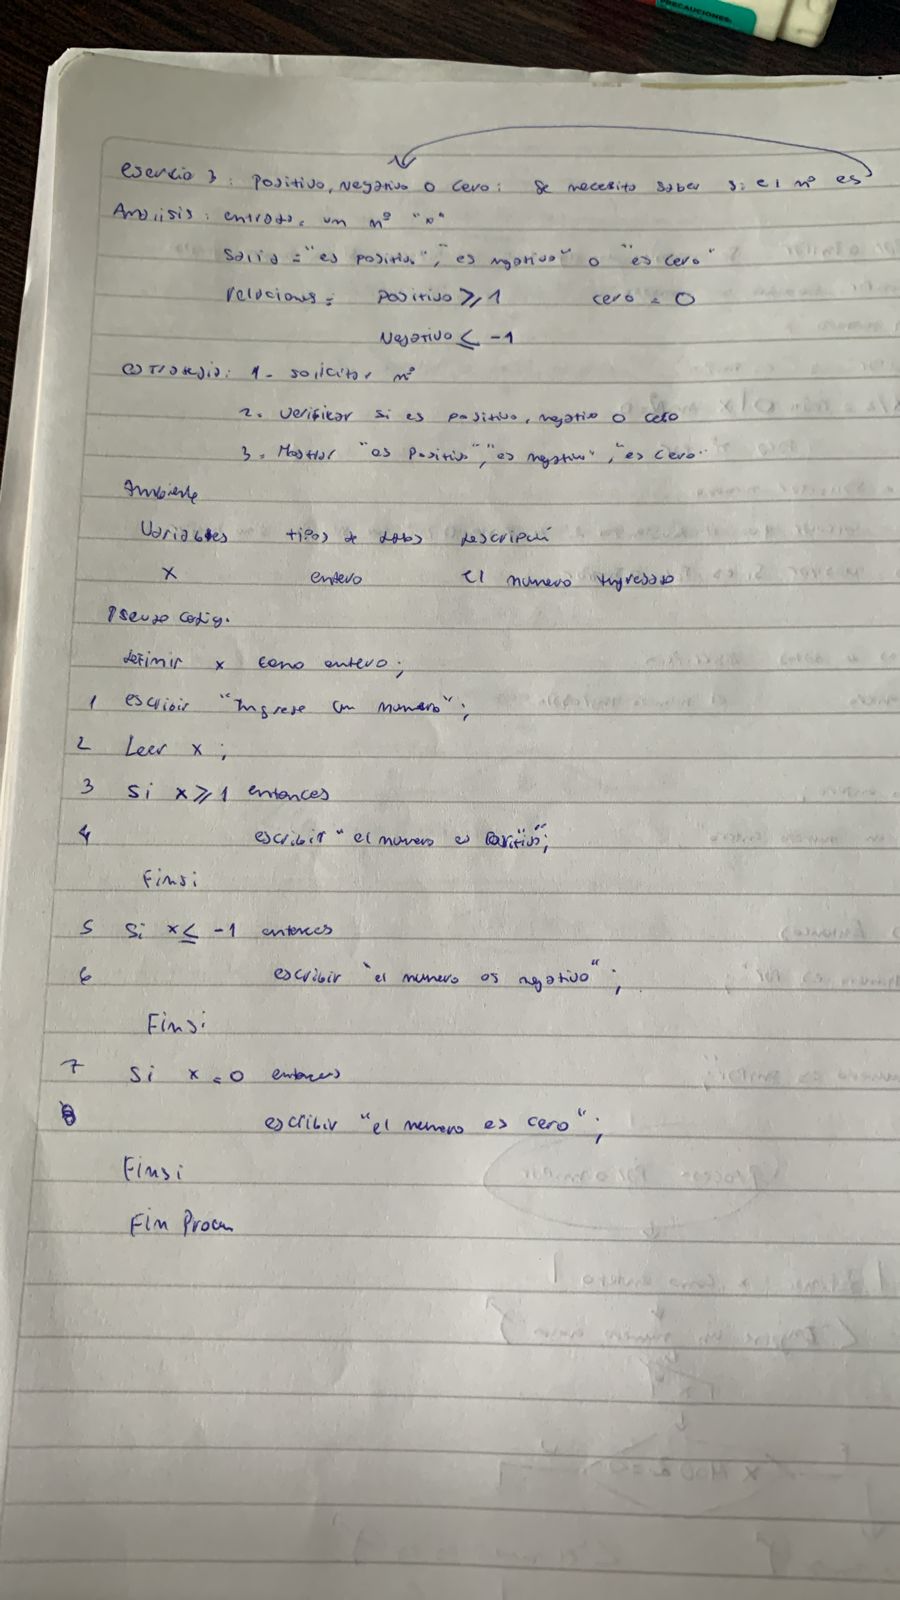 PRECAUCIONES:
esercicio 3: positivo, Negativo o cero: Se necesito saber si el nº es
Analisis: entrada = un nº "n"
Salid = "es positivo", es ngativo" o "es cero"
relaciones = positivo ⩾ 1 cero = 0
Negativo ≤ -1
estrategia: 1- solicitar nº
2. verificar si es positivo, negativo o cero
3. Mostrar "es Positivo", "es negativo", "es cero"
Ambiente
Variables tipos de datos descripción
x entero el numero ingresado
Pseudo codig.
definir x como entero;
1 escribir "Ingrese un numero";
2 Leer x ;
3 Si x ⩾ 1 entonces
4 escribir "el numero es positivo";
Finsi
5 Si x ≤ -1 entonces
6 escribir "el numero es negativo";
Finsi
7 Si x = 0 entonces
8 escribir "el numero es cero";
Finsi
Fin Proceso